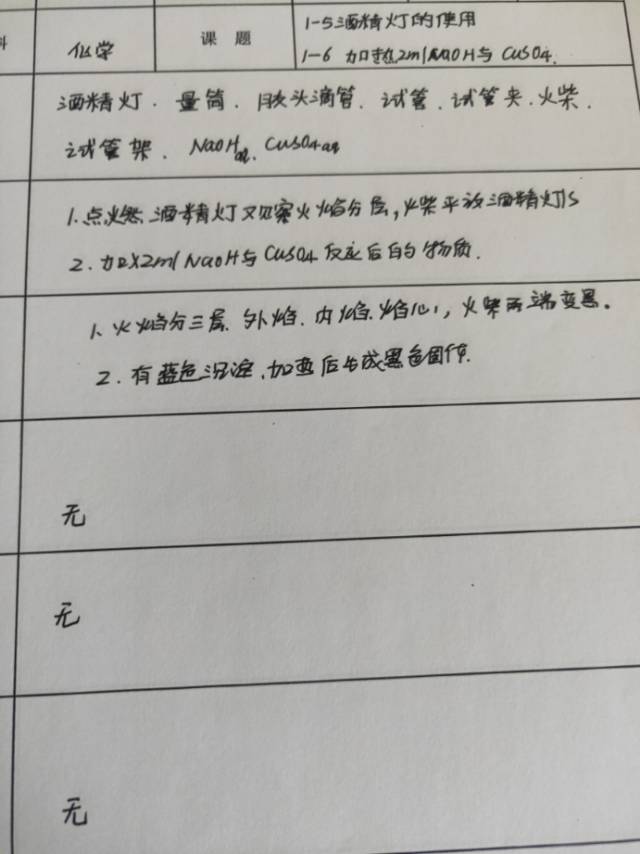 科 化学 课题 1-5酒精灯的使用
1-6 加热2ml NaOH与CuSO4.
酒精灯. 量筒. 胶头滴管. 试管. 试管夹. 火柴.
试管架. NaOHaq. CuSO4aq
1. 点燃酒精灯观察火焰分层,火柴平放酒精灯1s
2. 加热2ml NaOH与CuSO4反应后的物质.
1. 火焰分三层. 外焰. 内焰. 焰心, 火柴两端变黑。
2. 有蓝色沉淀.加热后生成黑色固体.
无
无
无